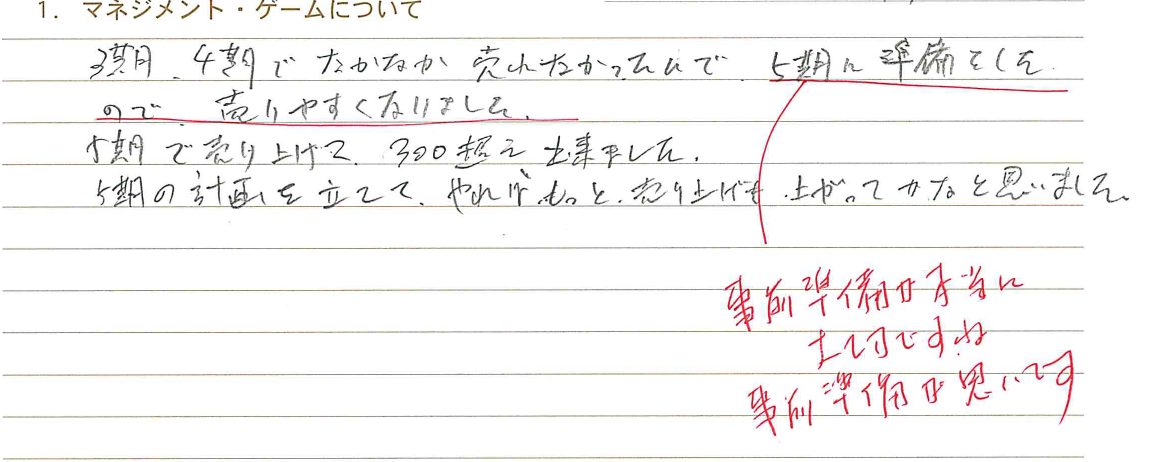 1. マネジメント・ゲームについて
3期、4期でなかなか売れなかったんで、5期に準備をした
ので、売りやすくなりました。
5期で売り上げて、300超え出来ました。
5期の計画を立てて、やればもっと、売り上げも上がってかなと思いました。
事前準備が本当に
大切ですね
事前準備が思いです